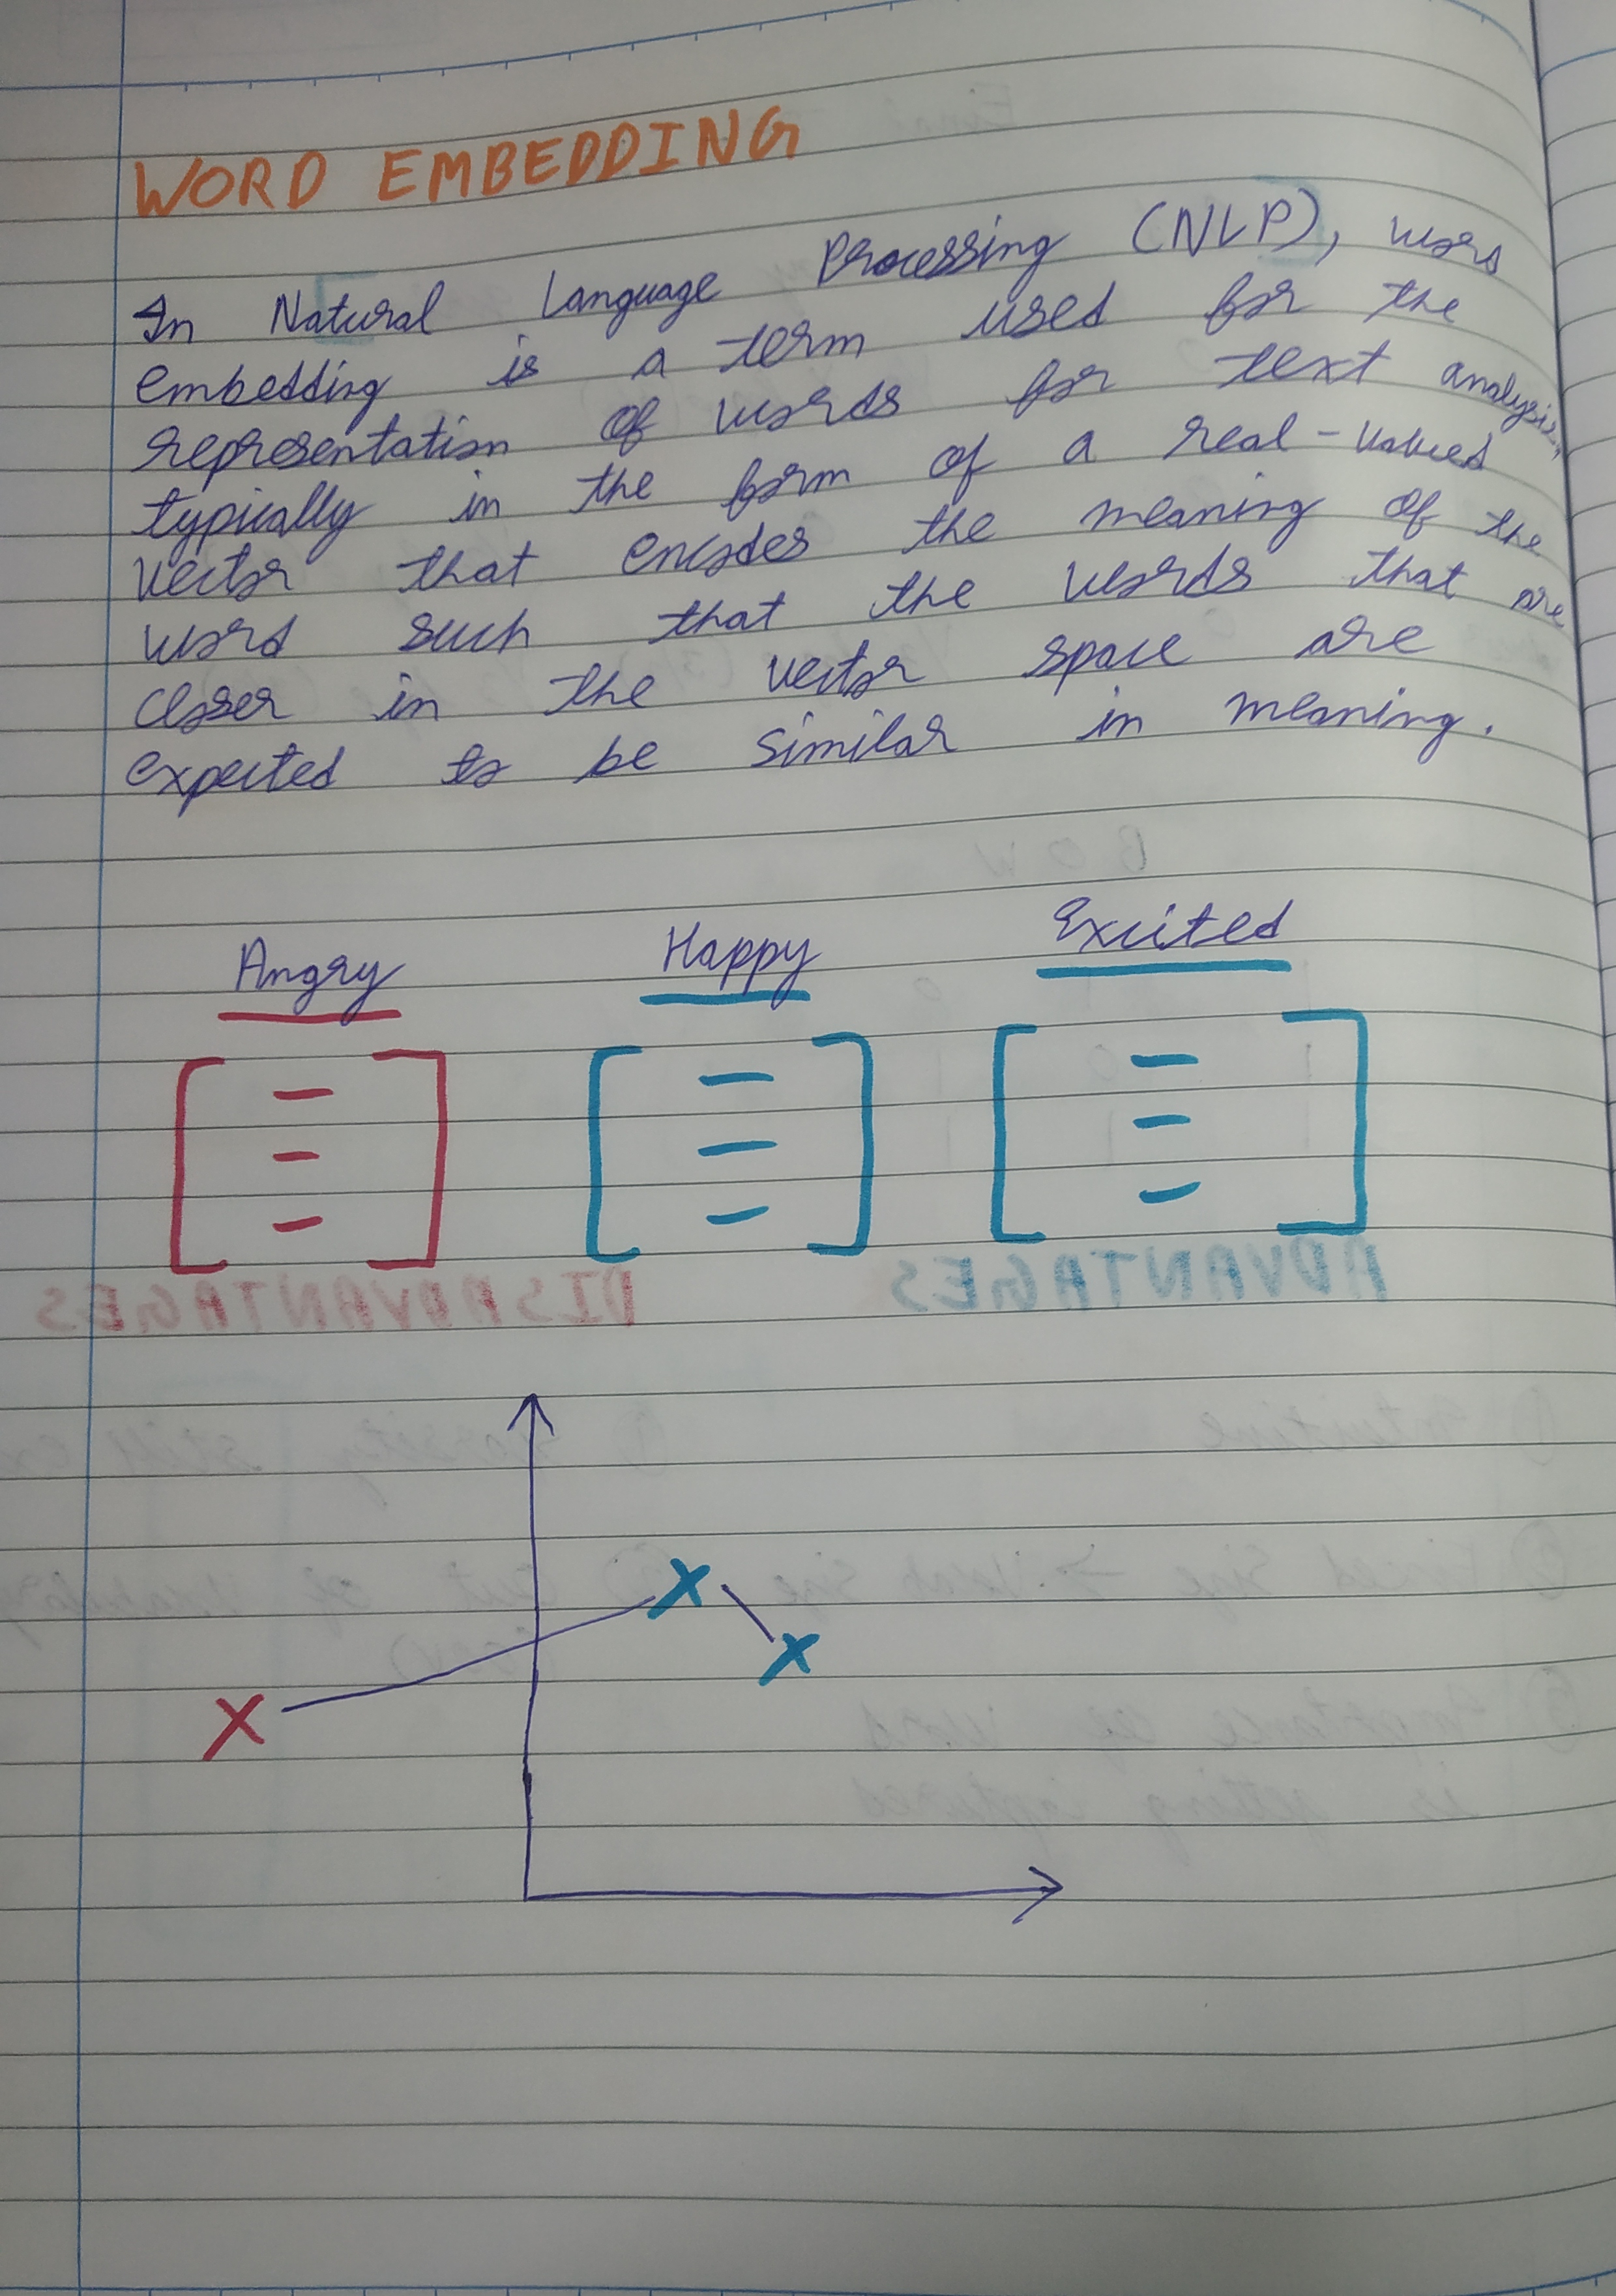 WORD EMBEDDING
In Natural Language Processing (NLP), word
embedding is a term used for the
representation of words for text analysis,
typically in the form of a real-valued
vector that encodes the meaning of the
word such that the words that are
closer in the vector space are
expected to be similar in meaning.
Angry Happy Excited
DISADVANTAGES ADVANTAGES